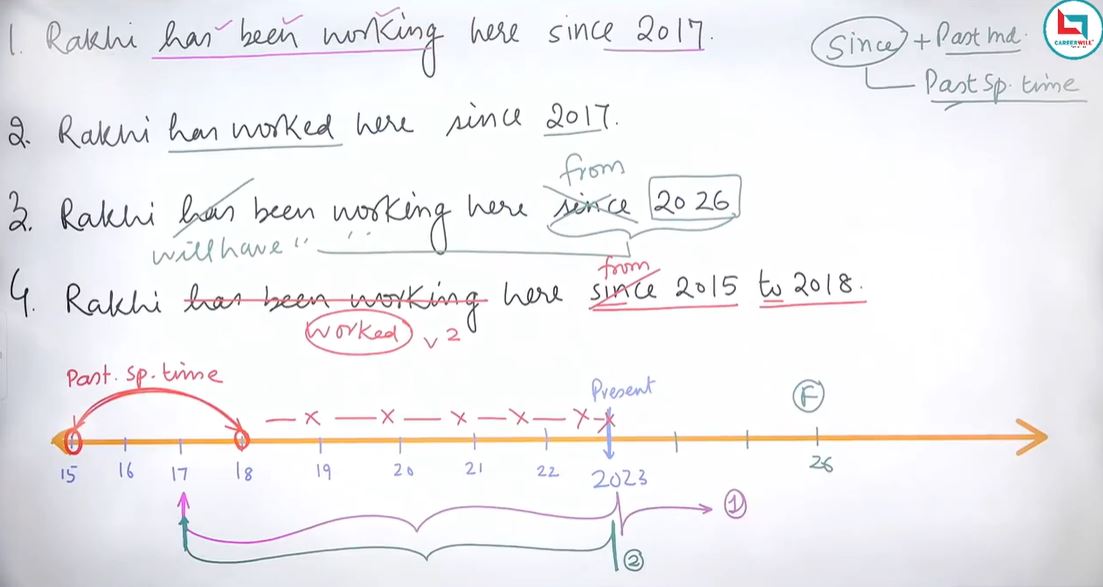 1. Rakhi has been working here since 2017.
Since + Past md.
Past sp. time
CAREERWILL
2. Rakhi has worked here since 2017.
from
3. Rakhi has been working here since 2026
will have " "
from
4. Rakhi has been working here since 2015 to 2018.
worked v2
Past. sp. time
Present
F
15 16 17 18 19 20 21 22 2023 26
1
2